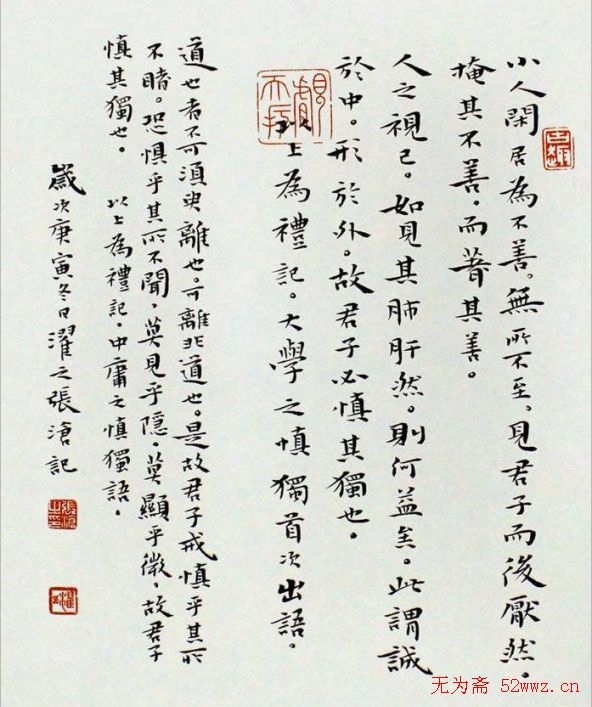 古趣
小人閑居為不善。無所不至。見君子而後厭然。
掩其不善。而著其善。
人之視己。如見其肺肝然。則何益矣。此謂誠
於中。形於外。故君子必慎其獨也。
以上為禮記。大學之慎獨首次出語。
道也者不可須臾離也。可離非道也。是故君子戒慎乎其所
不睹。恐懼乎其所不聞。莫見乎隱。莫顯乎微。故君子
慎其獨也。 以上為禮記。中庸之慎獨語。
歲次庚寅冬日濯之張滄記
无为斋 52wwz.cn